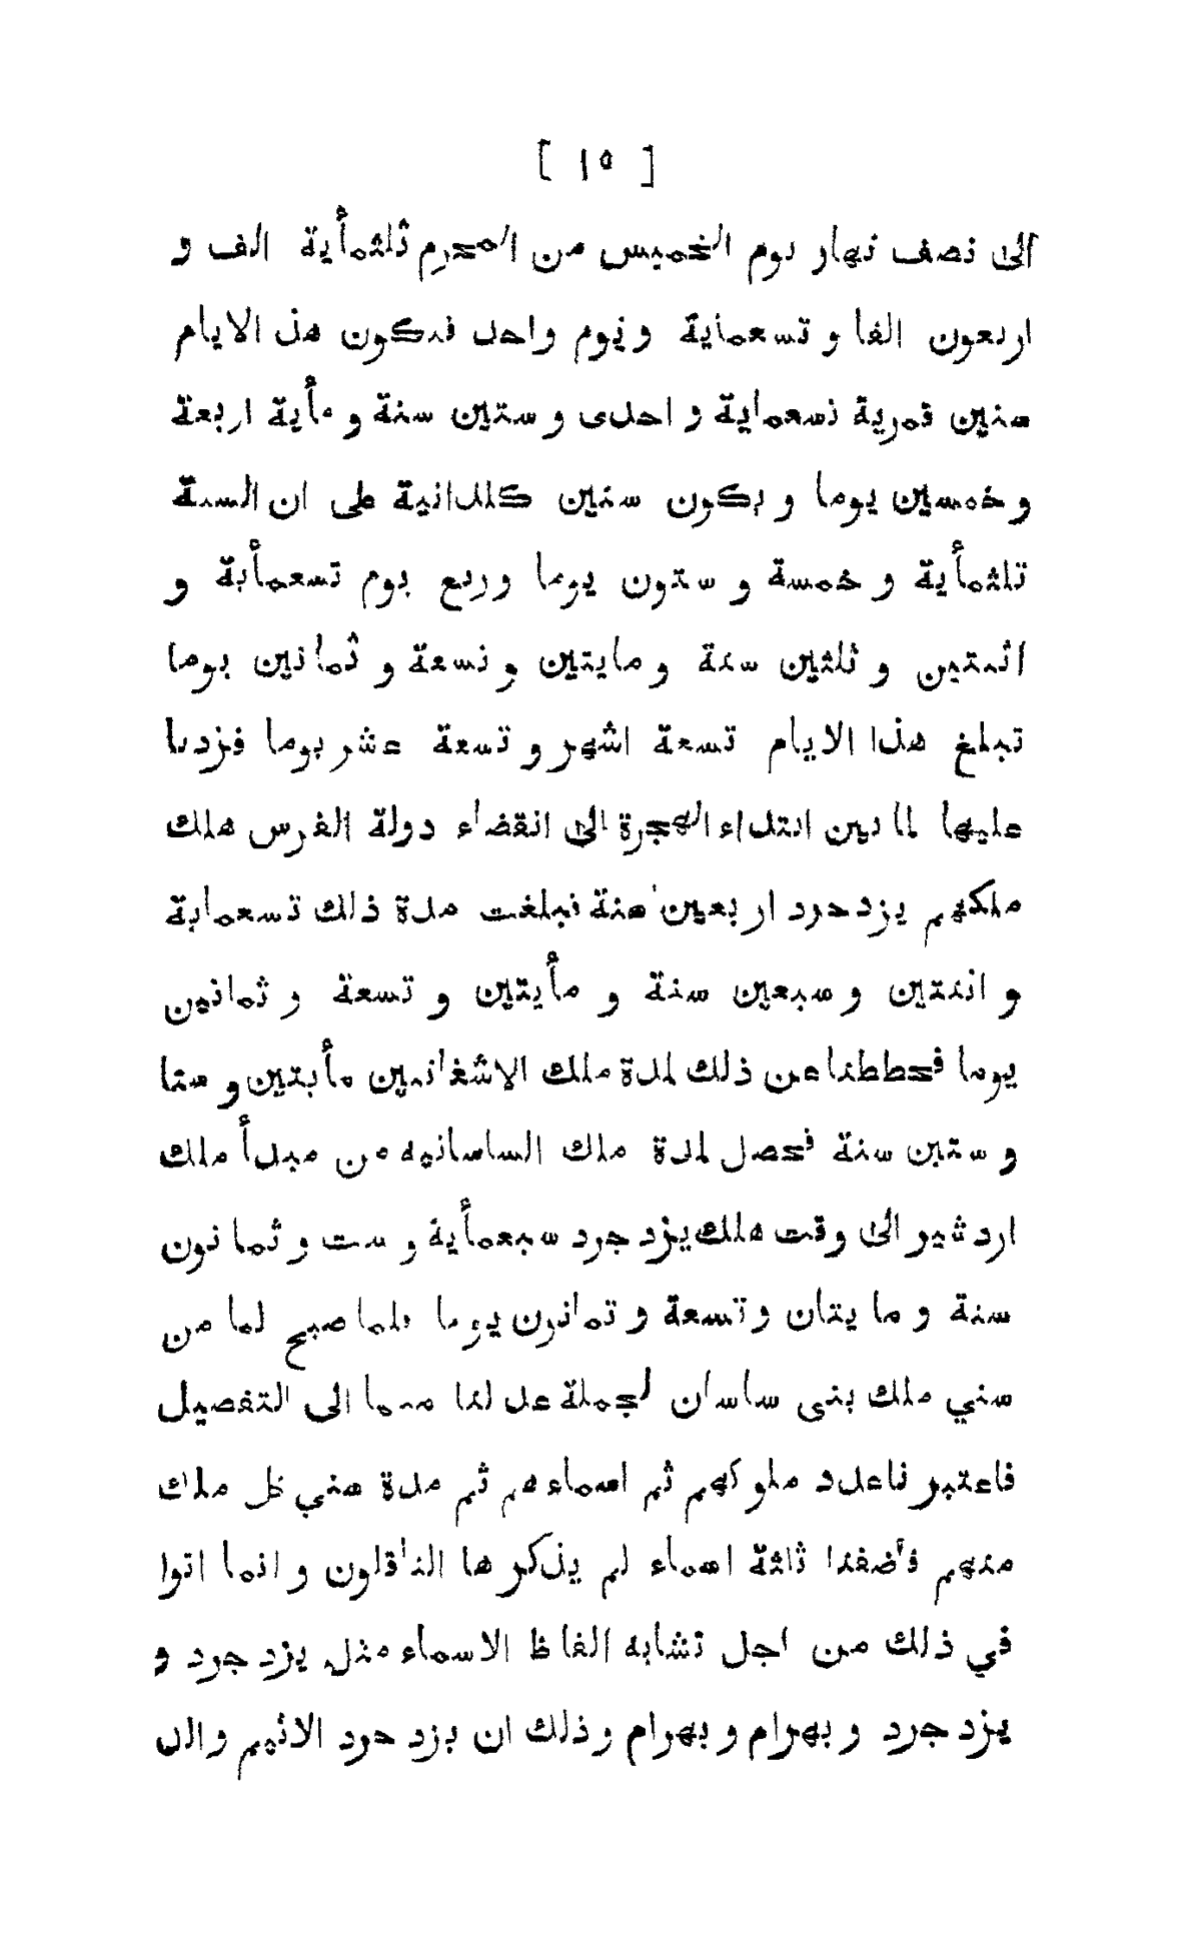 [ ١٥ ]
الى نصف نهار يوم الخميس من المحرم ثلثمأية الف و
اربعون الفا و تسعماية و يوم واحد فيكون هذ الايام
سنين قمرية تسعماية و احدى و ستين سنة و مأية اربعة
و خمسين يوما و يكون سنين كلدانية على ان السنة
ثلثمأية و خمسة و ستون يوما وربع يوم تسعمأية و
اثنتين و ثلثين سنة و مايتين و تسعة و ثمانين يوما
تبلغ هذا الايام تسعة اشهر و تسعة عشر يوما فزدنا
عليها لما بين ابتداء الهجرة الى انقضاء دولة الفرس هلك
ملكهم يزدجرد اربعين سنة فبلغت مدة ذلك تسعماية
و اثنتين و سبعين سنة و مأيتين و تسعة و ثمانين
يوما فحططنا من ذلك لمدة ملك الاشغانين مأيتين و ستا
و ستين سنة فحصل لمدة ملك الساسانيه من مبدأ ملك
اردشير الى وقت هلك يزدجرد سبعمأية و ست و ثمانون
سنة و مايتان و تسعة و ثمانون يوما فلما صح لما من
سني ملك بنى ساسان لجملة عدلنا مما الى التفصيل
فاعتبرناعدد ملوكهم ثم اسماءهم ثم مدة سني كل ملك
منهم فأضفنا ثلثة اسماء لم يذكرها الناقلون و انما اتوا
في ذلك من اجل تشابه الفاظ الاسماء مثل يزدجرد و
يزدجرد و بهرام و بهرام و ذلك ان يزدجرد الاثيم والد